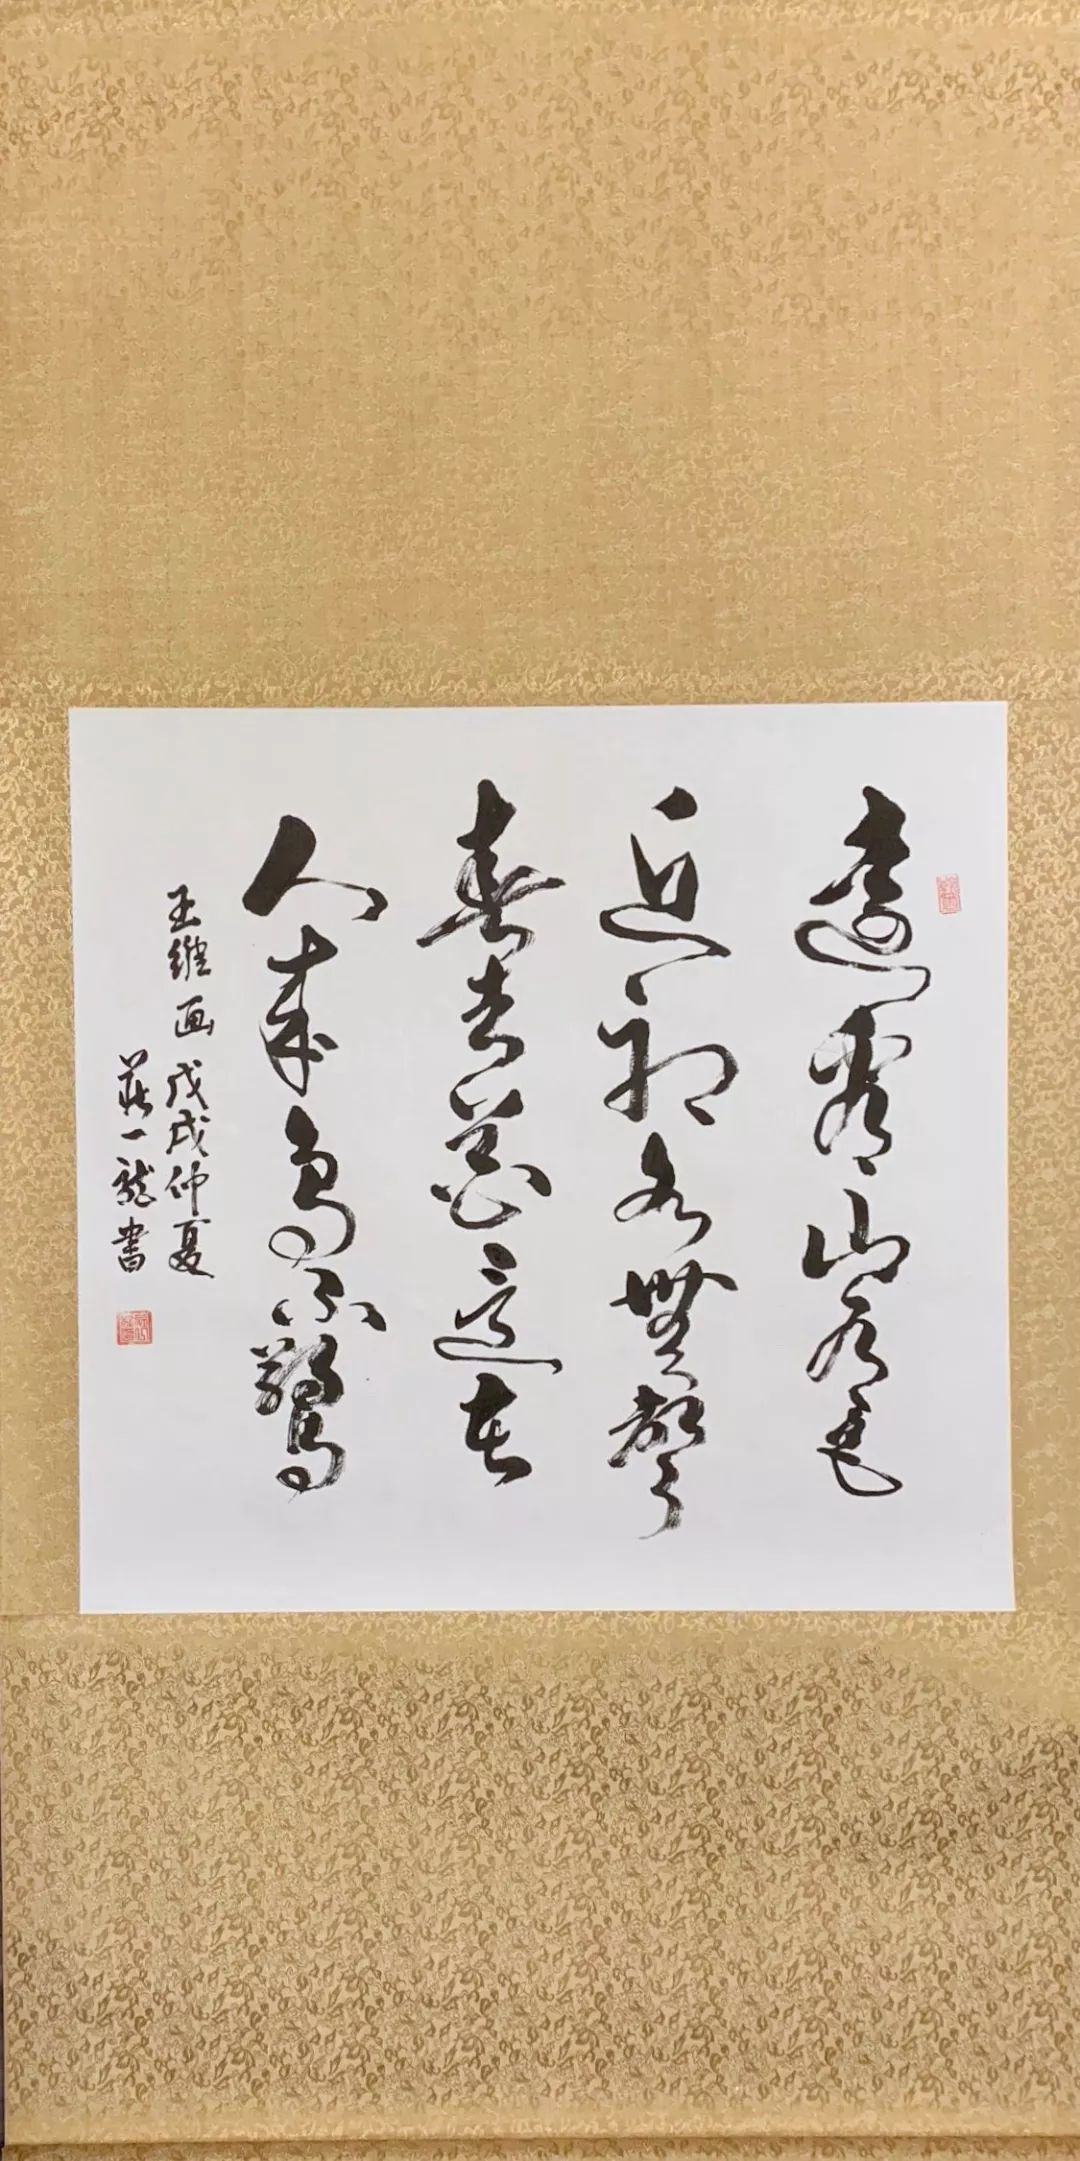 遠看山有色
近聽水無聲
春去花還在
人來鳥不驚
王維画 戊戌仲夏
莊一龍書